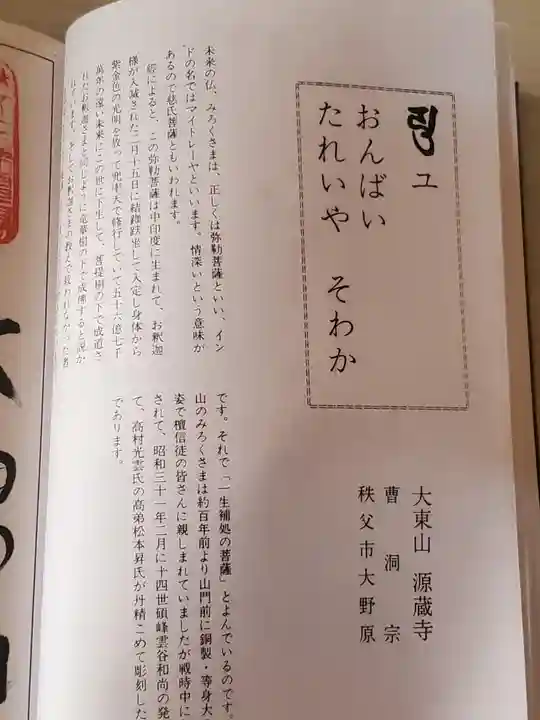 ユ
おんばい
たれいや　そわか
大東山 源蔵寺
曹洞宗
秩父市大野原
未来の仏、みろくさまは、正しくは弥勒菩薩といい、イン
ドの名ではマイトレーヤといいます。情深いという意味が
あるので慈氏菩薩ともいわれます。
経によると、この弥勒菩薩は中印度に生まれて、お釈迦
様が入滅された二月十五日に結跏趺坐して入定し身体から
紫金色の光明を放って兜率天で修行していて五十六億七千
萬年の遠い未来にこの世に下生して、菩提樹の下で成道さ
れたお釈迦さまと同じように竜華樹の下で成佛すると説か
れています。そしてお釈迦さまの教えで救われなかった者
です。それで「一生補処の菩薩」とよんでいるのです。
山のみろくさまは約百年前より山門前に銅製・等身大
姿で檀信徒の皆さんに親しまれていましたが戦時中に
されて、昭和三十一年二月に十四世碩峰雲谷和尚の発
て、高村光雲氏の高弟松本昇氏が丹精こめて彫刻した
であります。